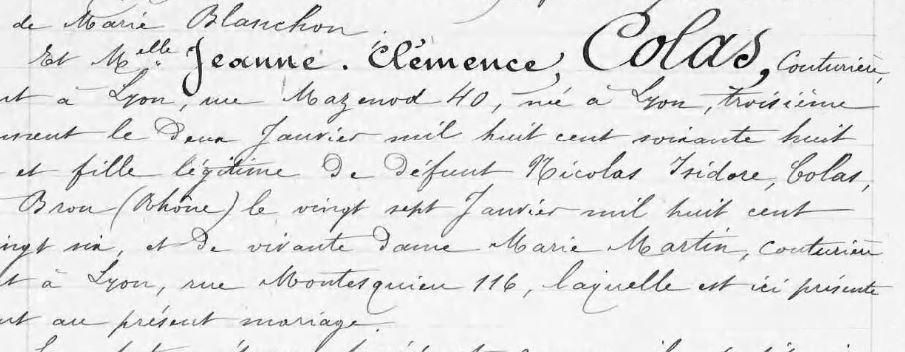 de Marie Blanchon.
Et Melle Jeanne. Clémence, Colas, Couturière,
nt à Lyon, rue Mazenod 40, né à Lyon, troisième
ment le deux Janvier mil huit cent soixante huit
et fille légitime de défunt Nicolas Isidore, Colas,
Bron (Rhône) le vingt sept Janvier mil huit cent
ingt six, et de vivante dame Marie Martin, couturière
nt à Lyon, rue Montesquieu 116, laquelle est ici présente
nt au présent mariage.